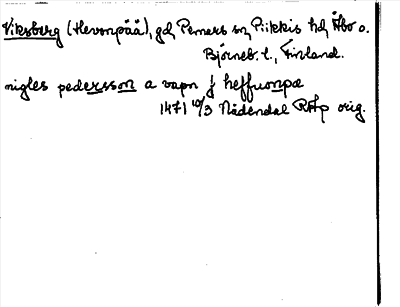 Viksberg (Hevonpää), gd, Pemers sn, Piikkis hd, Åbo o.
Björneb. l., Finland.
nigles pedersson a vapn j heffuonpæ
1471 10/3 Nådendal RAp orig.